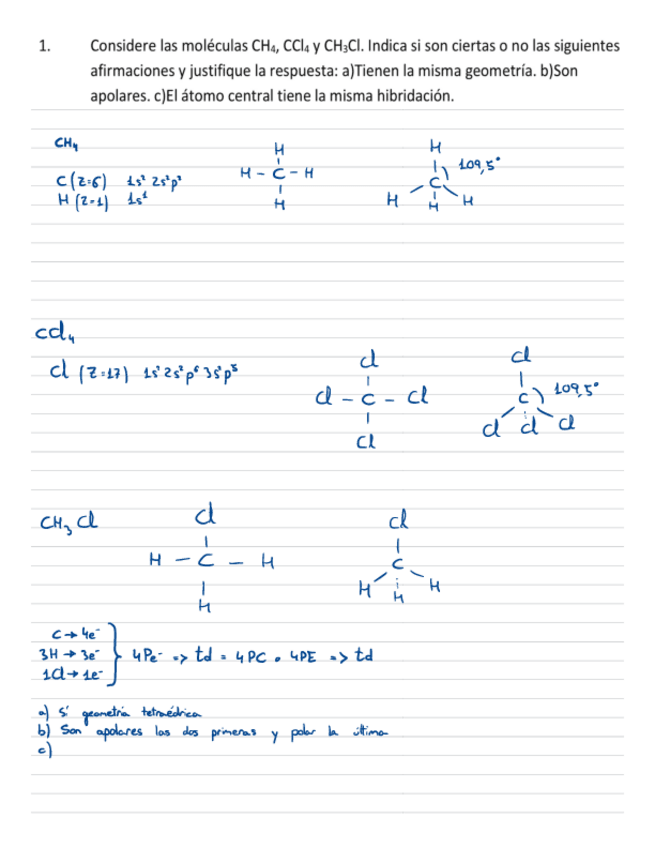 1. Considere las moléculas CH₄, CCl₄ y CH₃Cl. Indica si son ciertas o no las siguientes
afirmaciones y justifique la respuesta: a)Tienen la misma geometría. b)Son
apolares. c)El átomo central tiene la misma hibridación.
CH₄
C (Z=6) 1s² 2s²p²
H (Z=1) 1s¹
H
H - C - H
H
H
109,5°
C
H H H
CCl₄
Cl (Z=17) 1s² 2s²p⁶ 3s²p⁵
Cl
Cl - C - Cl
Cl
Cl
C 109,5°
Cl Cl Cl
CH₃Cl
Cl
H - C - H
H
Cl
C
H H H
C → 4e⁻
3H → 3e⁻
1Cl → 1e⁻
} 4Pe⁻ => td = 4PC • 4PE => td
a) Sí geometría tetraédrica
b) Son apolares las dos primeras y polar la última
c)